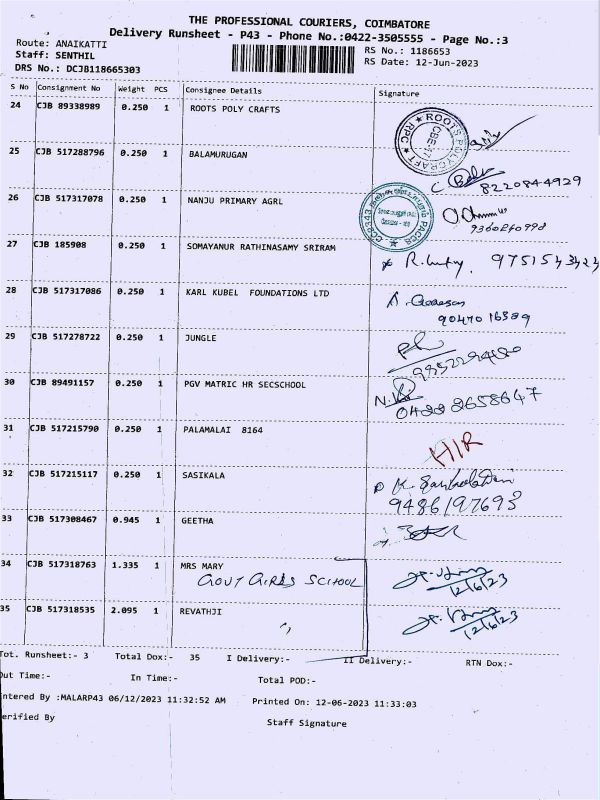 THE PROFESSIONAL COURIERS, COIMBATORE
Delivery Runsheet - P43 - Phone No.:0422-3505555 - Page No.:3
Route: ANAIKATTI
RS No.: 1186653
Staff: SENTHIL
RS Date: 12-Jun-2023
DRS No.: DCJB118665303
S No Consignment No Weight PCS Consignee Details Signature
24 CJB 89338989 0.250 1 ROOTS POLY CRAFTS
ROOTS POLYCRAFT RPC CBE-17
25 CJB 517288796 0.250 1 BALAMURUGAN
8220844929
26 CJB 517317078 0.250 1 NANJU PRIMARY AGRL
PACCS
27 CJB 185908 0.250 1 SOMAYANUR RATHINASAMY SRIRAM
9751543424
28 CJB 517317086 0.250 1 KARL KUBEL FOUNDATIONS LTD
9047016389
29 CJB 517278722 0.250 1 JUNGLE
30 CJB 89491157 0.250 1 PGV MATRIC HR SECSCHOOL
0422 2658647
31 CJB 517215790 0.250 1 PALAMALAI 8164
HIR
32 CJB 517215117 0.250 1 SASIKALA
9486197693
33 CJB 517308467 0.945 1 GEETHA
34 CJB 517318763 1.335 1 MRS MARY
GOVT GIRLS SCHOOL
12/6/23
35 CJB 517318535 2.095 1 REVATHJI
12/6/23
Tot. Runsheet:- 3 Total Dox:- 35 I Delivery:- II Delivery:- RTN Dox:-
Out Time:- In Time:- Total POD:-
ntered By :MALARP43 06/12/2023 11:32:52 AM Printed On: 12-06-2023 11:33:03
erified By Staff Signature